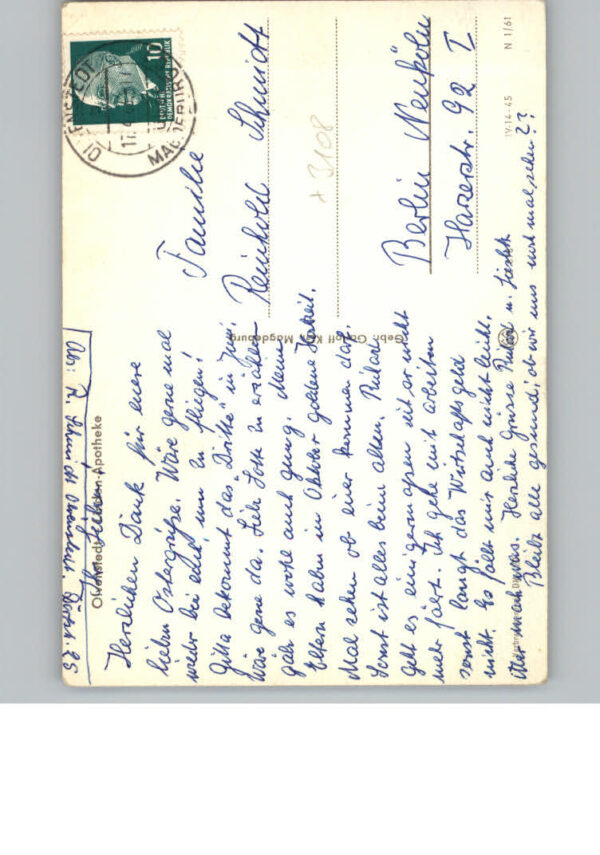 Abs: R. Schmidt Olvenstedt, Dorfstr. 25
Olvenstedt, Löwen-Apotheke
Ihr Lieben!
Herzlichen Dank für euere
lieben Ostergrüße. Wäre gerne mal
wieder bei euch, um zu fliegen!
Gitta bekommt das "Dritte" in Juni.
Wäre gerne da. Lieb Lotte zu erzählen
gäb es wohl auch genug. Meine
Eltern haben in Oktober goldene Hochzeit.
Mal sehen ob einer kommen darf.
Sonst ist alles beim alten.
Geht es einigermaßen mit er nicht
mehr fährt. Ich gehe mit arbeiten
sonst langt das Wirtschaftsgeld
nicht. Es fällt mir auch nicht leicht.
Herzliche Grüsse u.
Bleibt alle gesund, ob wir uns noch mal sehen??
Familie
Reinhold Schmidt
Berlin Neukölln
Harzerstr. 92 I
+ 3108
Magdeburg
IV-14-45 N 1/61
10
OLVENSTEDT
MAGDEBURG